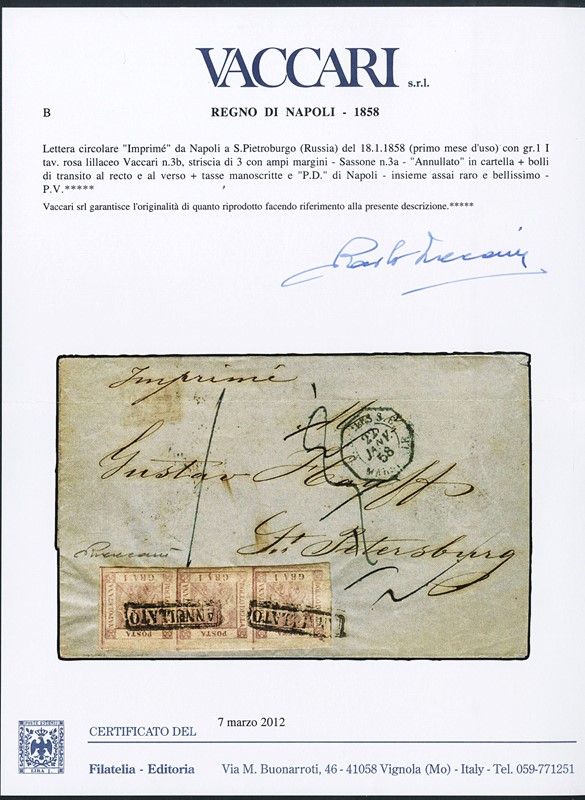 VACCARI s.r.l.
B REGNO DI NAPOLI - 1858
Lettera circolare "Imprimé" da Napoli a S.Pietroburgo (Russia) del 18.1.1858 (primo mese d'uso) con gr.1 I
tav. rosa lillaceo Vaccari n.3b, striscia di 3 con ampi margini - Sassone n.3a - "Annullato" in cartella + bolli
di transito al recto e al verso + tasse manoscritte e "P.D." di Napoli - insieme assai raro e bellissimo -
P.V.*****
Vaccari srl garantisce l'originalità di quanto riprodotto facendo riferimento alla presente descrizione.*****
Imprimé
22
JANV
58
Gustav
St Petersburg
GRA 1 GRA 1 GRA 1
ANNULLATO ANNULLATO
POSTA POSTA POSTA
LIRA 1.
CERTIFICATO DEL 7 marzo 2012
Filatelia - Editoria Via M. Buonarroti, 46 - 41058 Vignola (Mo) - Italy - Tel. 059-771251